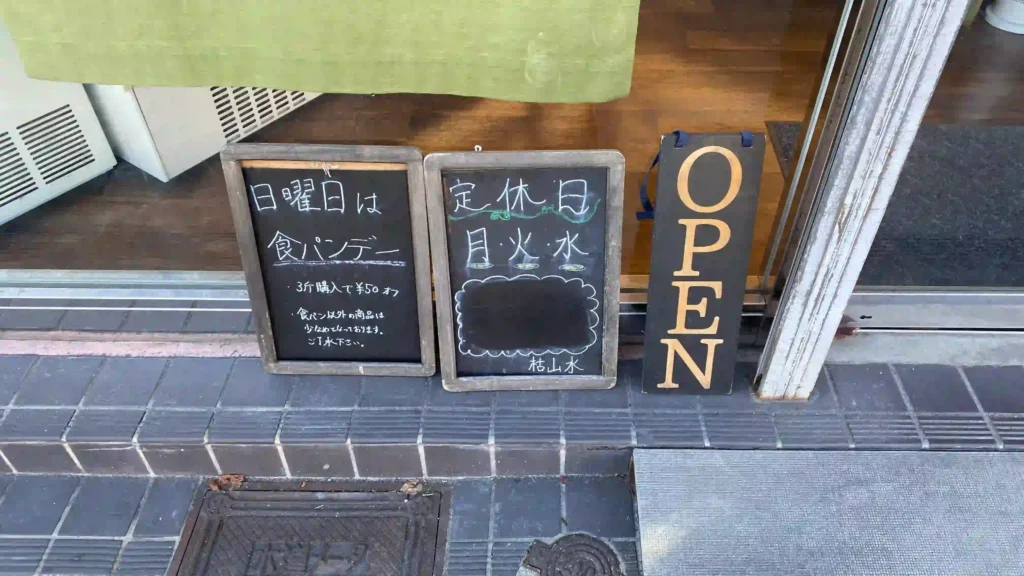 日曜日は
食パンデー
・3斤購入で¥50オフ
・食パン以外の商品は
少なめとなっております。
ご了承下さい。
定休日
月・火・水
枯山水
OPEN